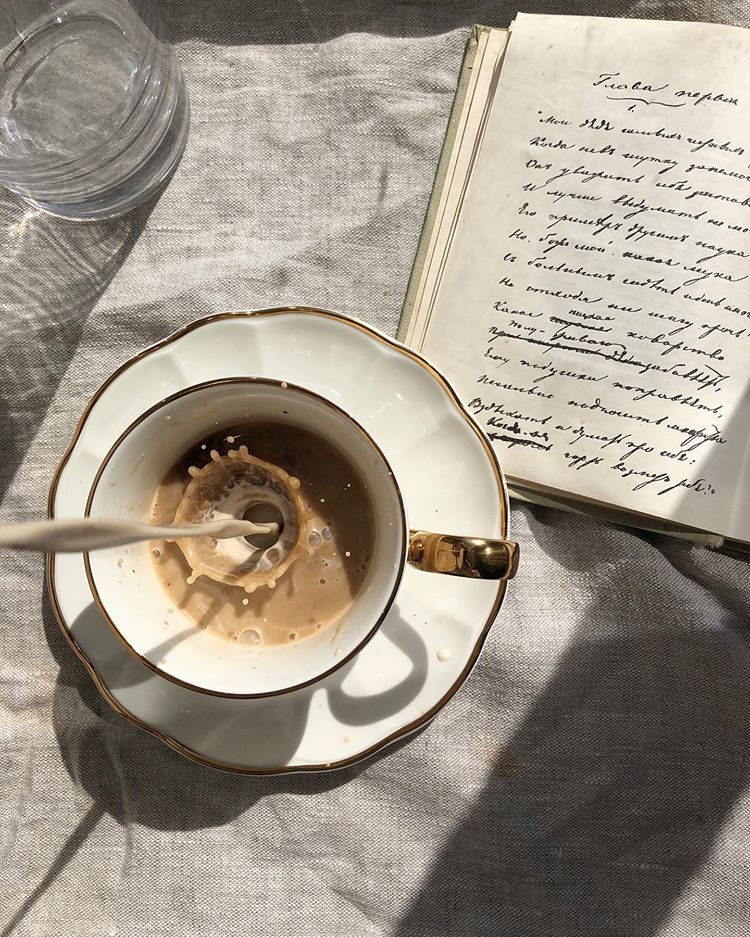 Глава первая
1.
"Мой дядя самыхъ честныхъ
Когда не въ шутку занемог
Онъ уважать себя застав
И лучше выдумать не мо
Его примѣръ другимъ наука
Но, боже мой! какая скука
Съ больнымъ сидѣть и день и но
Не отходя ни шагу прочь
Какое низкое коварство
Полу-живаго забавлять,
Ему подушки поправлять,
Печально подносить лекарства
Вздыхать и думать про себя:
Когда же чортъ возьметъ тебя?"